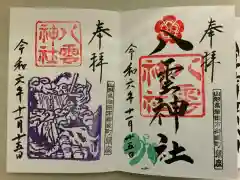 奉拝
八雲神社
令和六年十一月十五日
奉拝
八雲神社
八雲神社
令和六年十一月十五日